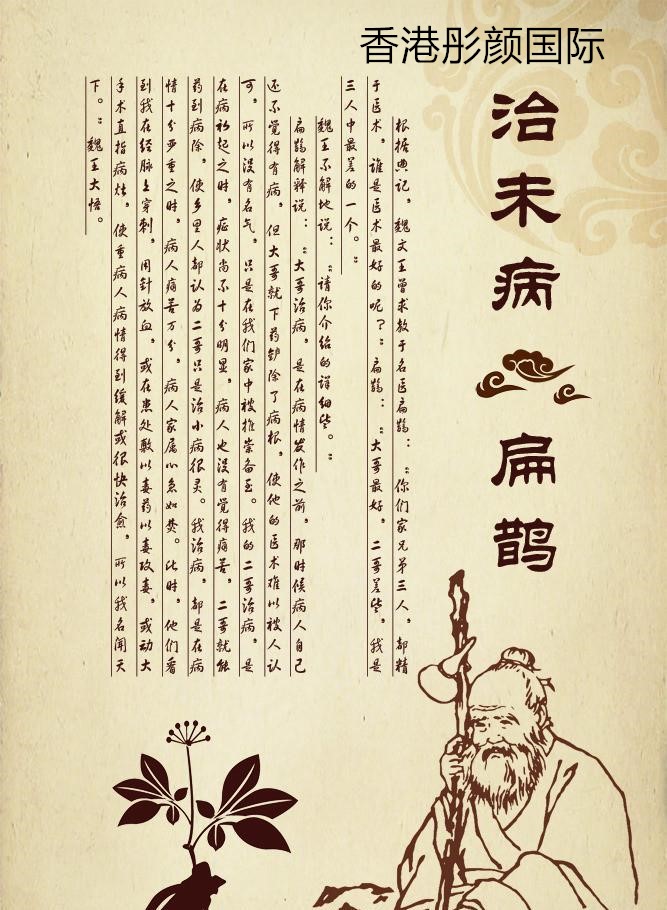 香港彤颜国际
治未病
扁鹊
根据典记，魏文王曾求教于名医扁鹊：“你们家兄弟三人，都精
于医术，谁是医术最好的呢？”扁鹊：“大哥最好，二哥差些，我是
三人中最差的一个。”
魏王不解地说：“请你介绍的详细些。”
扁鹊解释说：“大哥治病，是在病情发作之前，那时候病人自己
还不觉得有病，但大哥就下药铲除了病根，使他的医术难以被人认
可，所以没有名气，只是在我们家中被推崇备至。我的二哥治病，是
在病初起之时，症状尚不十分明显，病人也没有觉得痛苦，二哥就能
药到病除，使乡里人都认为二哥只是治小病很灵。我治病，都是在病
情十分严重之时，病人痛苦万分，病人家属心急如焚。此时，他们看
到我在经脉上穿刺，用针放血，或在患处敷以毒药以毒攻毒，或动大
手术直指病灶，使重病人病情得到缓解或很快治愈，所以我名闻天
下。”魏王大悟。